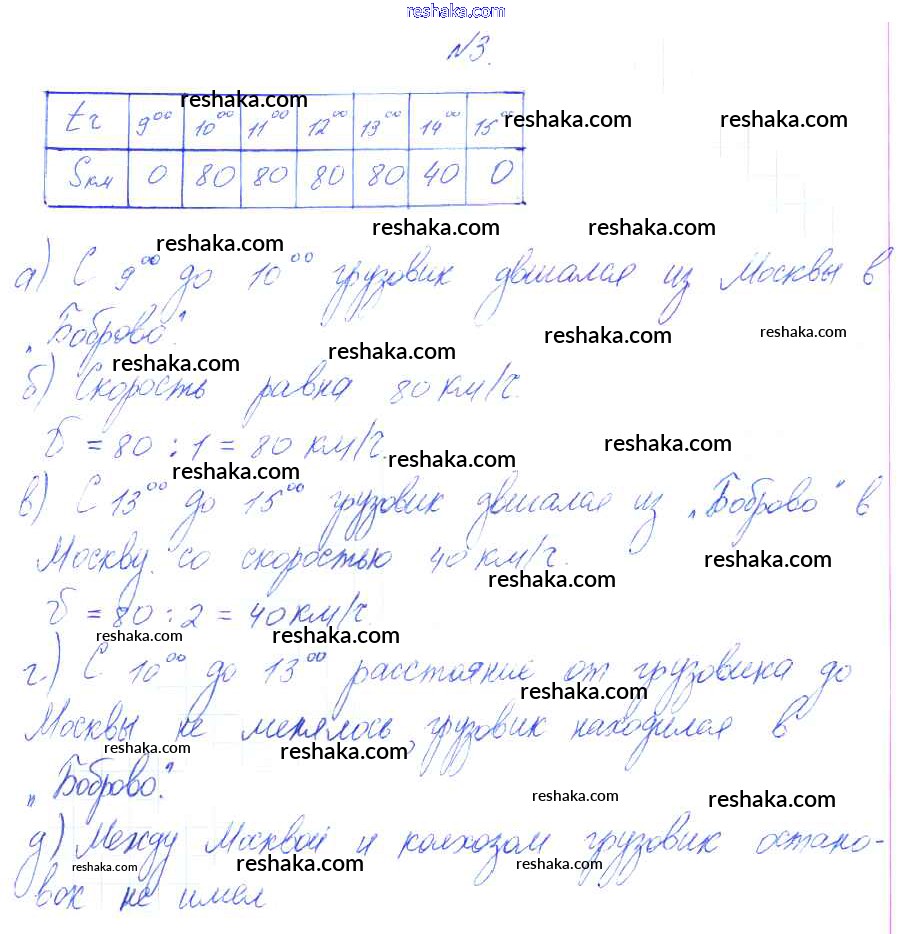 reshaka.com
№3.
reshaka.com
t ч 9⁰⁰ 10⁰⁰ 11⁰⁰ 12⁰⁰ 13⁰⁰ 14⁰⁰ 15⁰⁰
reshaka.com reshaka.com
S км 0 80 80 80 80 40 0
reshaka.com reshaka.com reshaka.com
а) С 9⁰⁰ до 10⁰⁰ грузовик двигался из Москвы в
„Боброво".
reshaka.com reshaka.com reshaka.com reshaka.com
б) Скорость равна 80 км/ч.
V = 80 : 1 = 80 км/ч.
reshaka.com reshaka.com reshaka.com
в) С 13⁰⁰ до 15⁰⁰ грузовик двигался из „Боброво" в
Москву со скоростью 40 км/ч.
reshaka.com reshaka.com
V = 80 : 2 = 40 км/ч.
reshaka.com reshaka.com
г) С 10⁰⁰ до 13⁰⁰ расстояние от грузовика до
reshaka.com
Москвы не менялось, грузовик находился в
reshaka.com reshaka.com
„Боброво."
reshaka.com reshaka.com
д) Между Москвой и колхозом грузовик остано-
reshaka.com reshaka.com reshaka.com
вок не имел